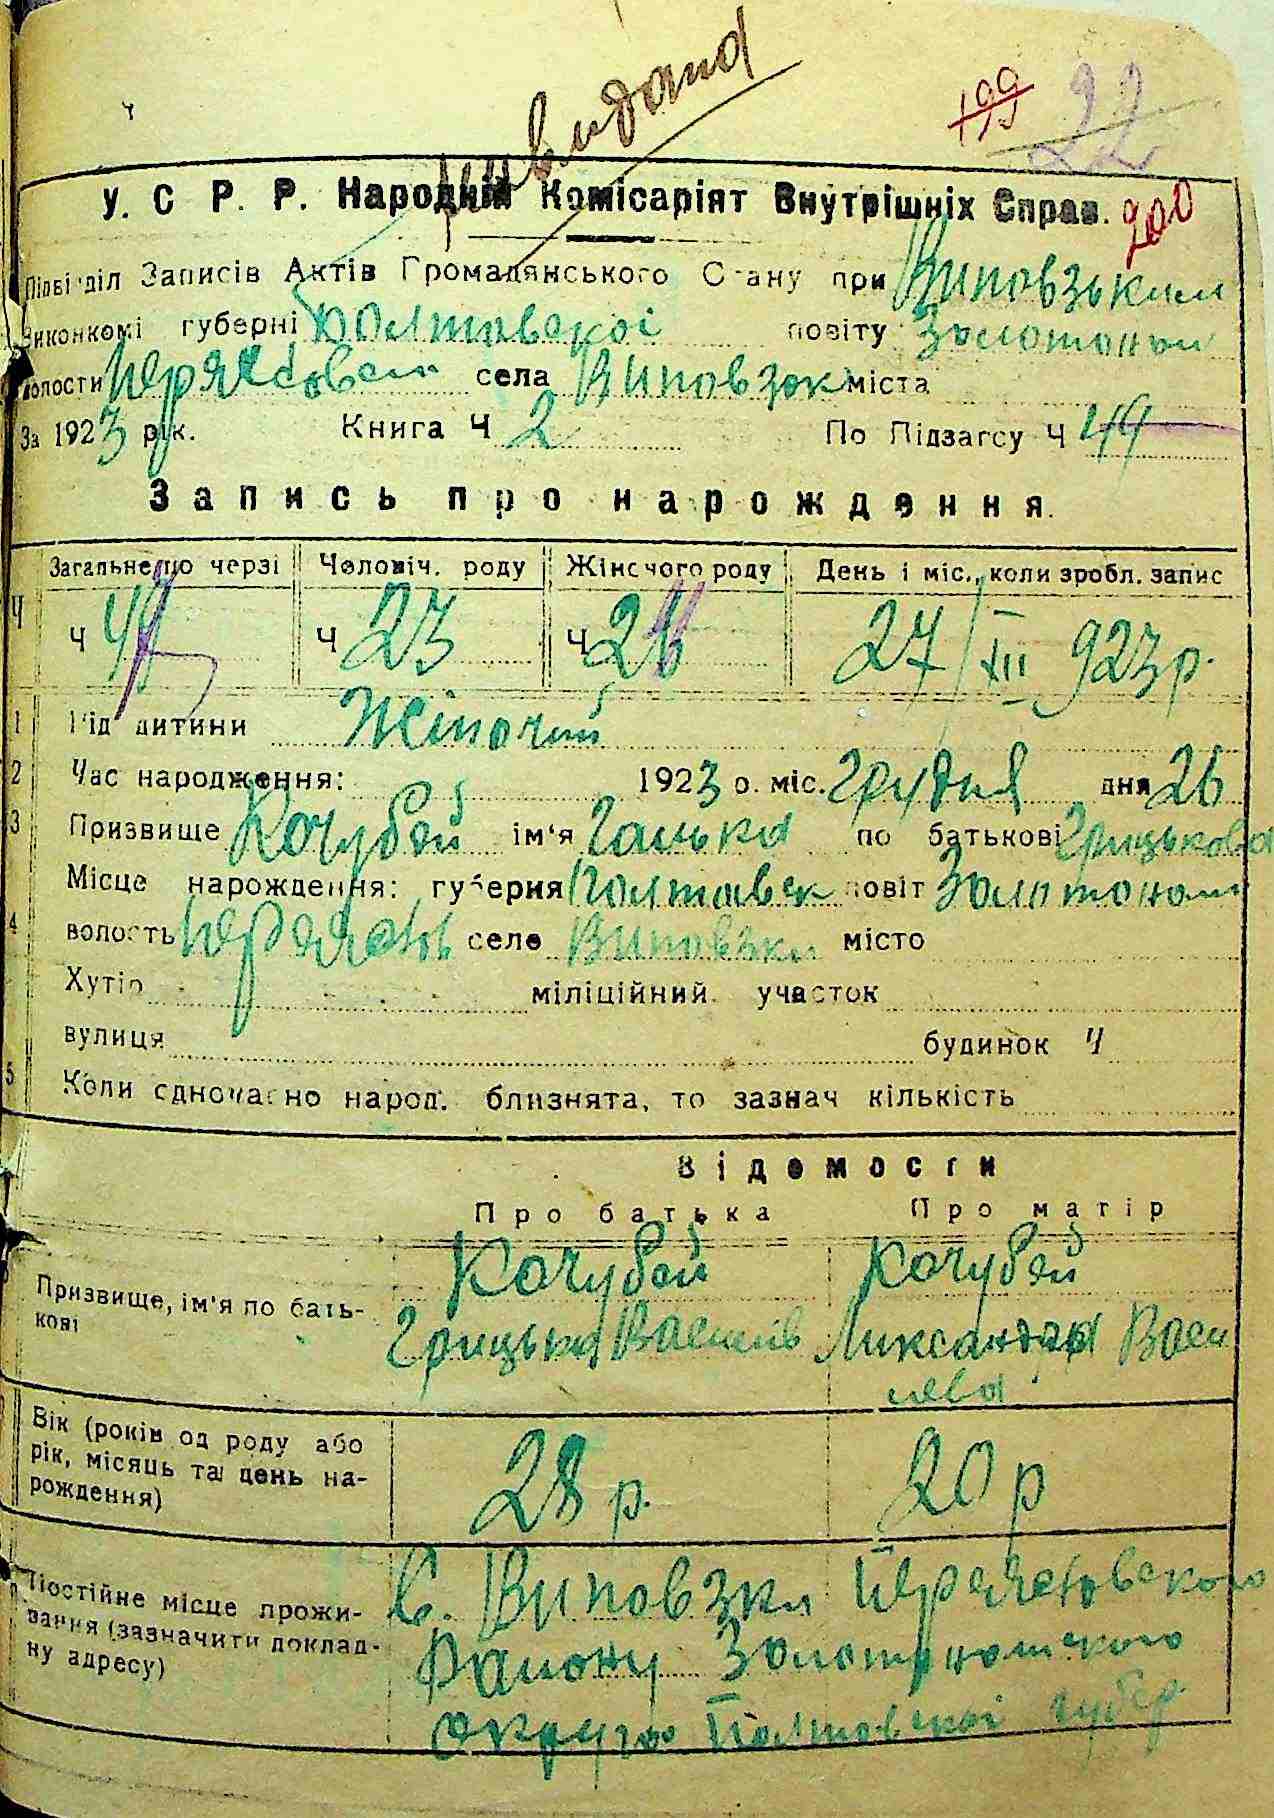 199 22
У. С Р. Р. Народній Комісаріят Внутрішніх Справ. 200
Підвідділ Записів Актів Громадянського Стану при Виповзьким
Виконкомі губерні Полтавскоі повіту Золотоном
волости села Виповзок міста
За 1923 рік. Книга Ч 2 По Підзагсу Ч 49
Запись про нарождення.
Загальне по черзі Человіч. роду Жіночого роду День і міс., коли зробл. запис
Ч Ч 49 Ч 23 Ч 27/XII 923 р.
1 Рід дитини Жіночий
2 Час народження: 1923 о. міс. Грудня дня 26
3 Призвище Кочубей ім'я Ганька по батькові Грицькова
Місце нарождення: губерня Полтавск повіт Золотоном
4 волость село Виповзки місто
Хутір міліційний участок
вулиця будинок Ч
5 Коли одночасно народ. близнята, то зазнач кількість
Відомости
Про батька Про матір
Призвище, ім'я по бать-
кові
Кочубей Кочубей
Грицька Васил​ів Ликсандра Васи
лева
Вік (років од роду або
рік, місяць та день на-
рождення)
28 р. 20 р
Постійне місце прожи-
вання (зазначити доклад-
ну адресу)
С. Виповзки
Району Золотоношского
округа Полтавскоі губер